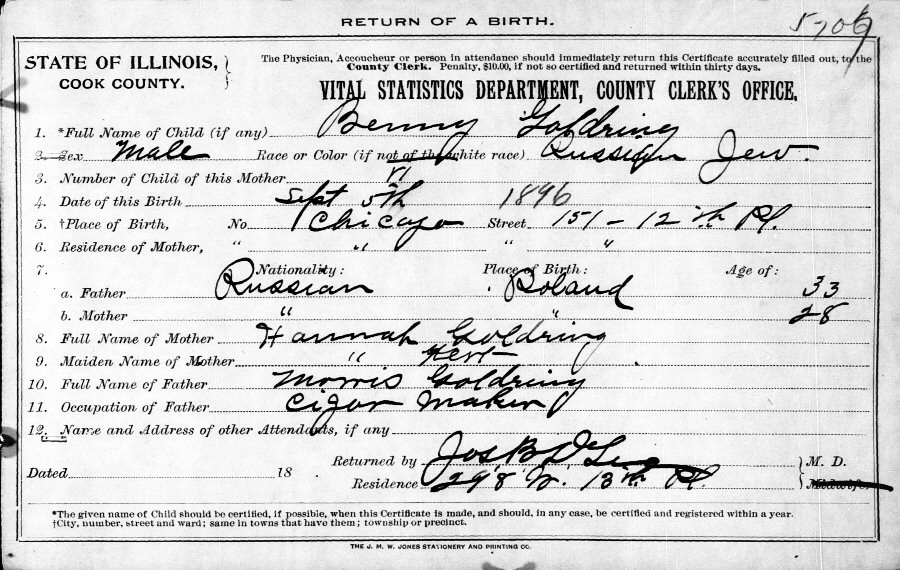 RETURN OF A BIRTH.
5706
STATE OF ILLINOIS,
COOK COUNTY.
The Physician, Accoucheur or person in attendance should immediately return this Certificate accurately filled out, to the
County Clerk. Penalty, $10.00, if not so certified and returned within thirty days.
VITAL STATISTICS DEPARTMENT, COUNTY CLERK'S OFFICE.
1. *Full Name of Child (if any) Benny Goldring
2. Sex Male Race or Color (if not of the white race) Russian Jew.
3. Number of Child of this Mother VI
4. Date of this Birth Sept 5th 1896
5. †Place of Birth, No. Chicago Street 151 - 12th Pl.
6. Residence of Mother, " " " "
7. Nationality: Place of Birth: Age of:
a. Father Russian Poland 33
b. Mother " " 28
8. Full Name of Mother Hannah Goldring
9. Maiden Name of Mother " Kert
10. Full Name of Father Morris Goldring
11. Occupation of Father Cigar Maker
12. Name and Address of other Attendants, if any
Dated 18 Returned by Jos. B. DeLee M. D.
Residence 298 W. 13th Pl. Midwife.
*The given name of Child should be certified, if possible, when this Certificate is made, and should, in any case, be certified and registered within a year.
†City, number, street and ward; same in towns that have them; township or precinct.
THE J. M. W. JONES STATIONERY AND PRINTING CO.